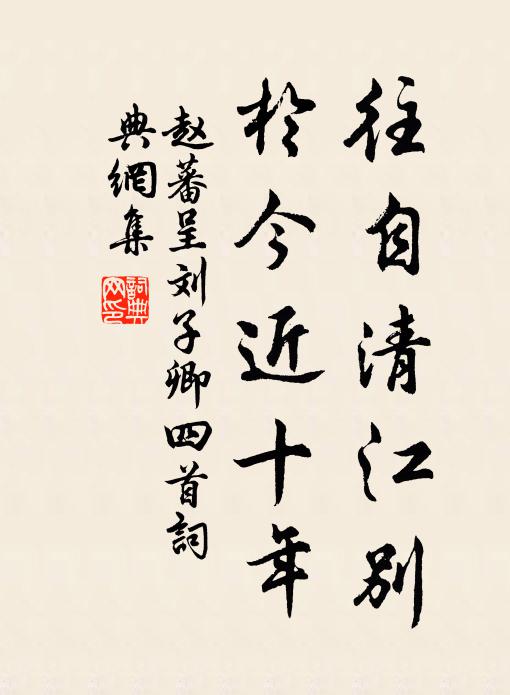 往自清江别
於今近十年
赵蕃呈刘子卿四首詞
典網集
詞典
网印